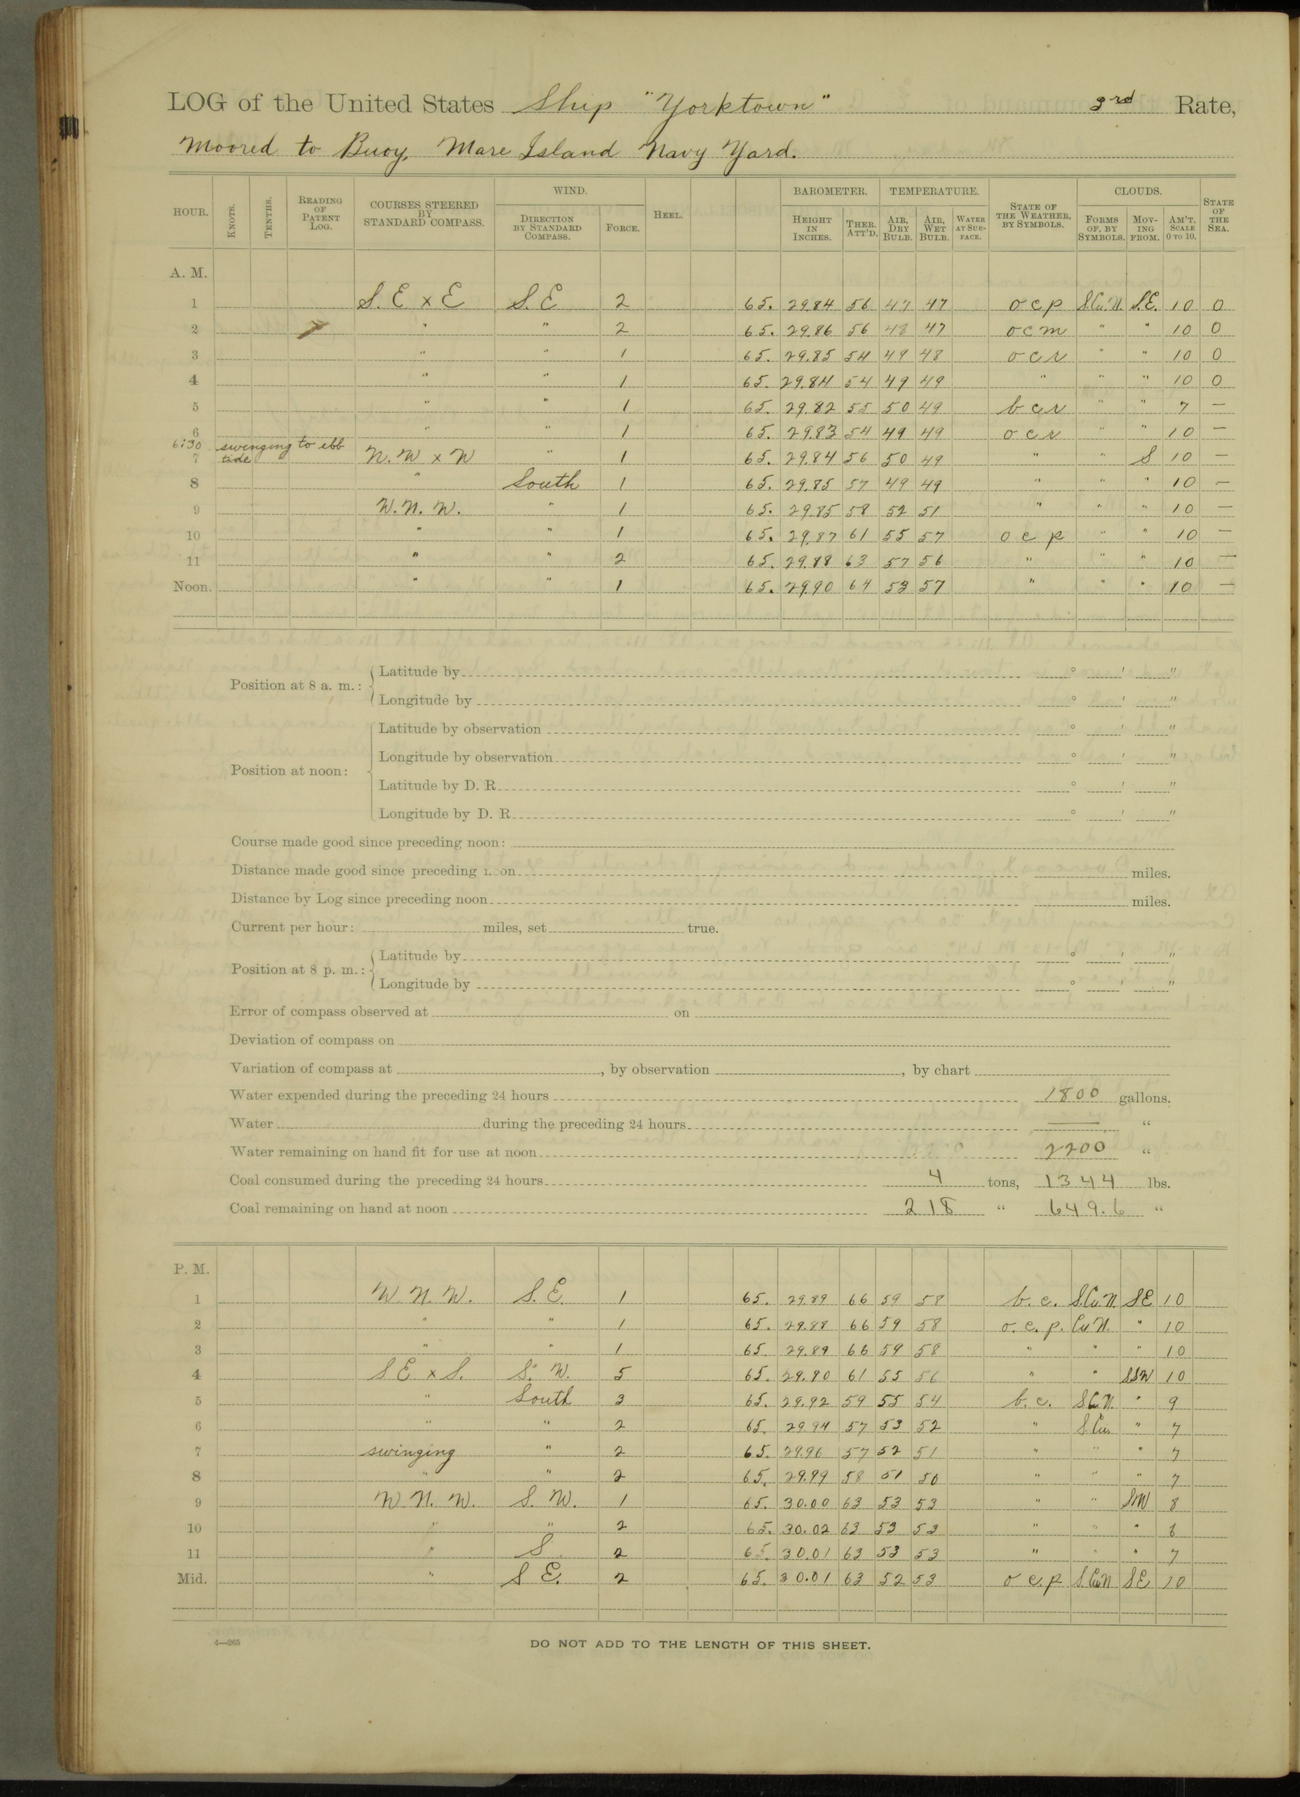 LOG of the United States Ship "Yorktown" 3rd Rate,
Moored to Buoy, Mare Island Navy Yard.
HOUR. KNOTS. TENTHS. READING OF PATENT LOG. COURSES STEERED BY STANDARD COMPASS. WIND. DIRECTION BY STANDARD COMPASS. FORCE. HEEL. BAROMETER. HEIGHT IN INCHES. THER. ATT'D. TEMPERATURE. AIR, DRY BULB. AIR, WET BULB. WATER AT SUR-FACE. STATE OF THE WEATHER, BY SYMBOLS. CLOUDS. FORMS OF, BY SYMBOLS. MOV-ING FROM. AM'T. SCALE 0 TO 10. STATE OF THE SEA.
A. M.
1 S. E x E S. E 2 65. 29.84 56 47 47 o c p S.Cu.N. S.E. 10 0
2 " " 2 65. 29.86 56 48 47 o c m " " 10 0
3 " " 1 65. 29.85 54 49 48 o c r " " 10 0
4 " " 1 65. 29.84 54 49 49 " " " 10 0
5 " " 1 65. 29.82 55 50 49 b c r " " 7 —
6 " " 1 65. 29.83 54 49 49 o c r " " 10 —
6:30 swinging to ebb tide
7 N. W x W " 1 65. 29.84 56 50 49 " " S 10 —
8 " South 1 65. 29.85 57 49 49 " " " 10 —
9 W. N. W. " 1 65. 29.85 58 52 51 " " " 10 —
10 " " 1 65. 29.87 61 55 57 o c p " " 10 —
11 " " 2 65. 29.88 63 57 56 " " " 10 —
Noon. " " 1 65. 29.90 64 53 57 " " " 10 —
Position at 8 a. m.: Latitude by ° ' "
Longitude by ° ' "
Position at noon: Latitude by observation ° ' "
Longitude by observation ° ' "
Latitude by D. R. ° ' "
Longitude by D. R. ° ' "
Course made good since preceding noon:
Distance made good since preceding noon miles.
Distance by Log since preceding noon miles.
Current per hour: miles, set true.
Position at 8 p. m.: Latitude by ° ' "
Longitude by ° ' "
Error of compass observed at on
Deviation of compass on
Variation of compass at , by observation , by chart
Water expended during the preceding 24 hours 1800 gallons.
Water during the preceding 24 hours — "
Water remaining on hand fit for use at noon 2200 "
Coal consumed during the preceding 24 hours 4 tons, 1344 lbs.
Coal remaining on hand at noon 218 " 649.6 "
P. M.
1 W. N. W. S. E. 1 65. 29.89 66 59 58 b. c. S.Cu.N. SE 10
2 " " 1 65. 29.88 66 59 58 o. c. p. Cu N. " 10
3 " " 1 65. 29.89 66 59 58 " " " 10
4 S E x S. S. W. 5 65. 29.90 61 55 56 " " SSW 10
5 " South 3 65. 29.92 59 55 54 b. c. S.C.N. " 9
6 " " 2 65. 29.94 57 53 52 " S.Cu. " 7
7 swinging " 2 65. 29.96 57 52 51 " " " 7
8 " " 2 65. 29.99 58 51 50 " " " 7
9 W. N. W. S. W. 1 65. 30.00 63 53 53 " " SW 8
10 " " 2 65. 30.02 63 53 53 " " " 8
11 " S 2 65. 30.01 63 53 53 " " " 7
Mid. " S E. 2 65. 30.01 63 52 53 o c. p S.CuN SE 10
4—265
DO NOT ADD TO THE LENGTH OF THIS SHEET.